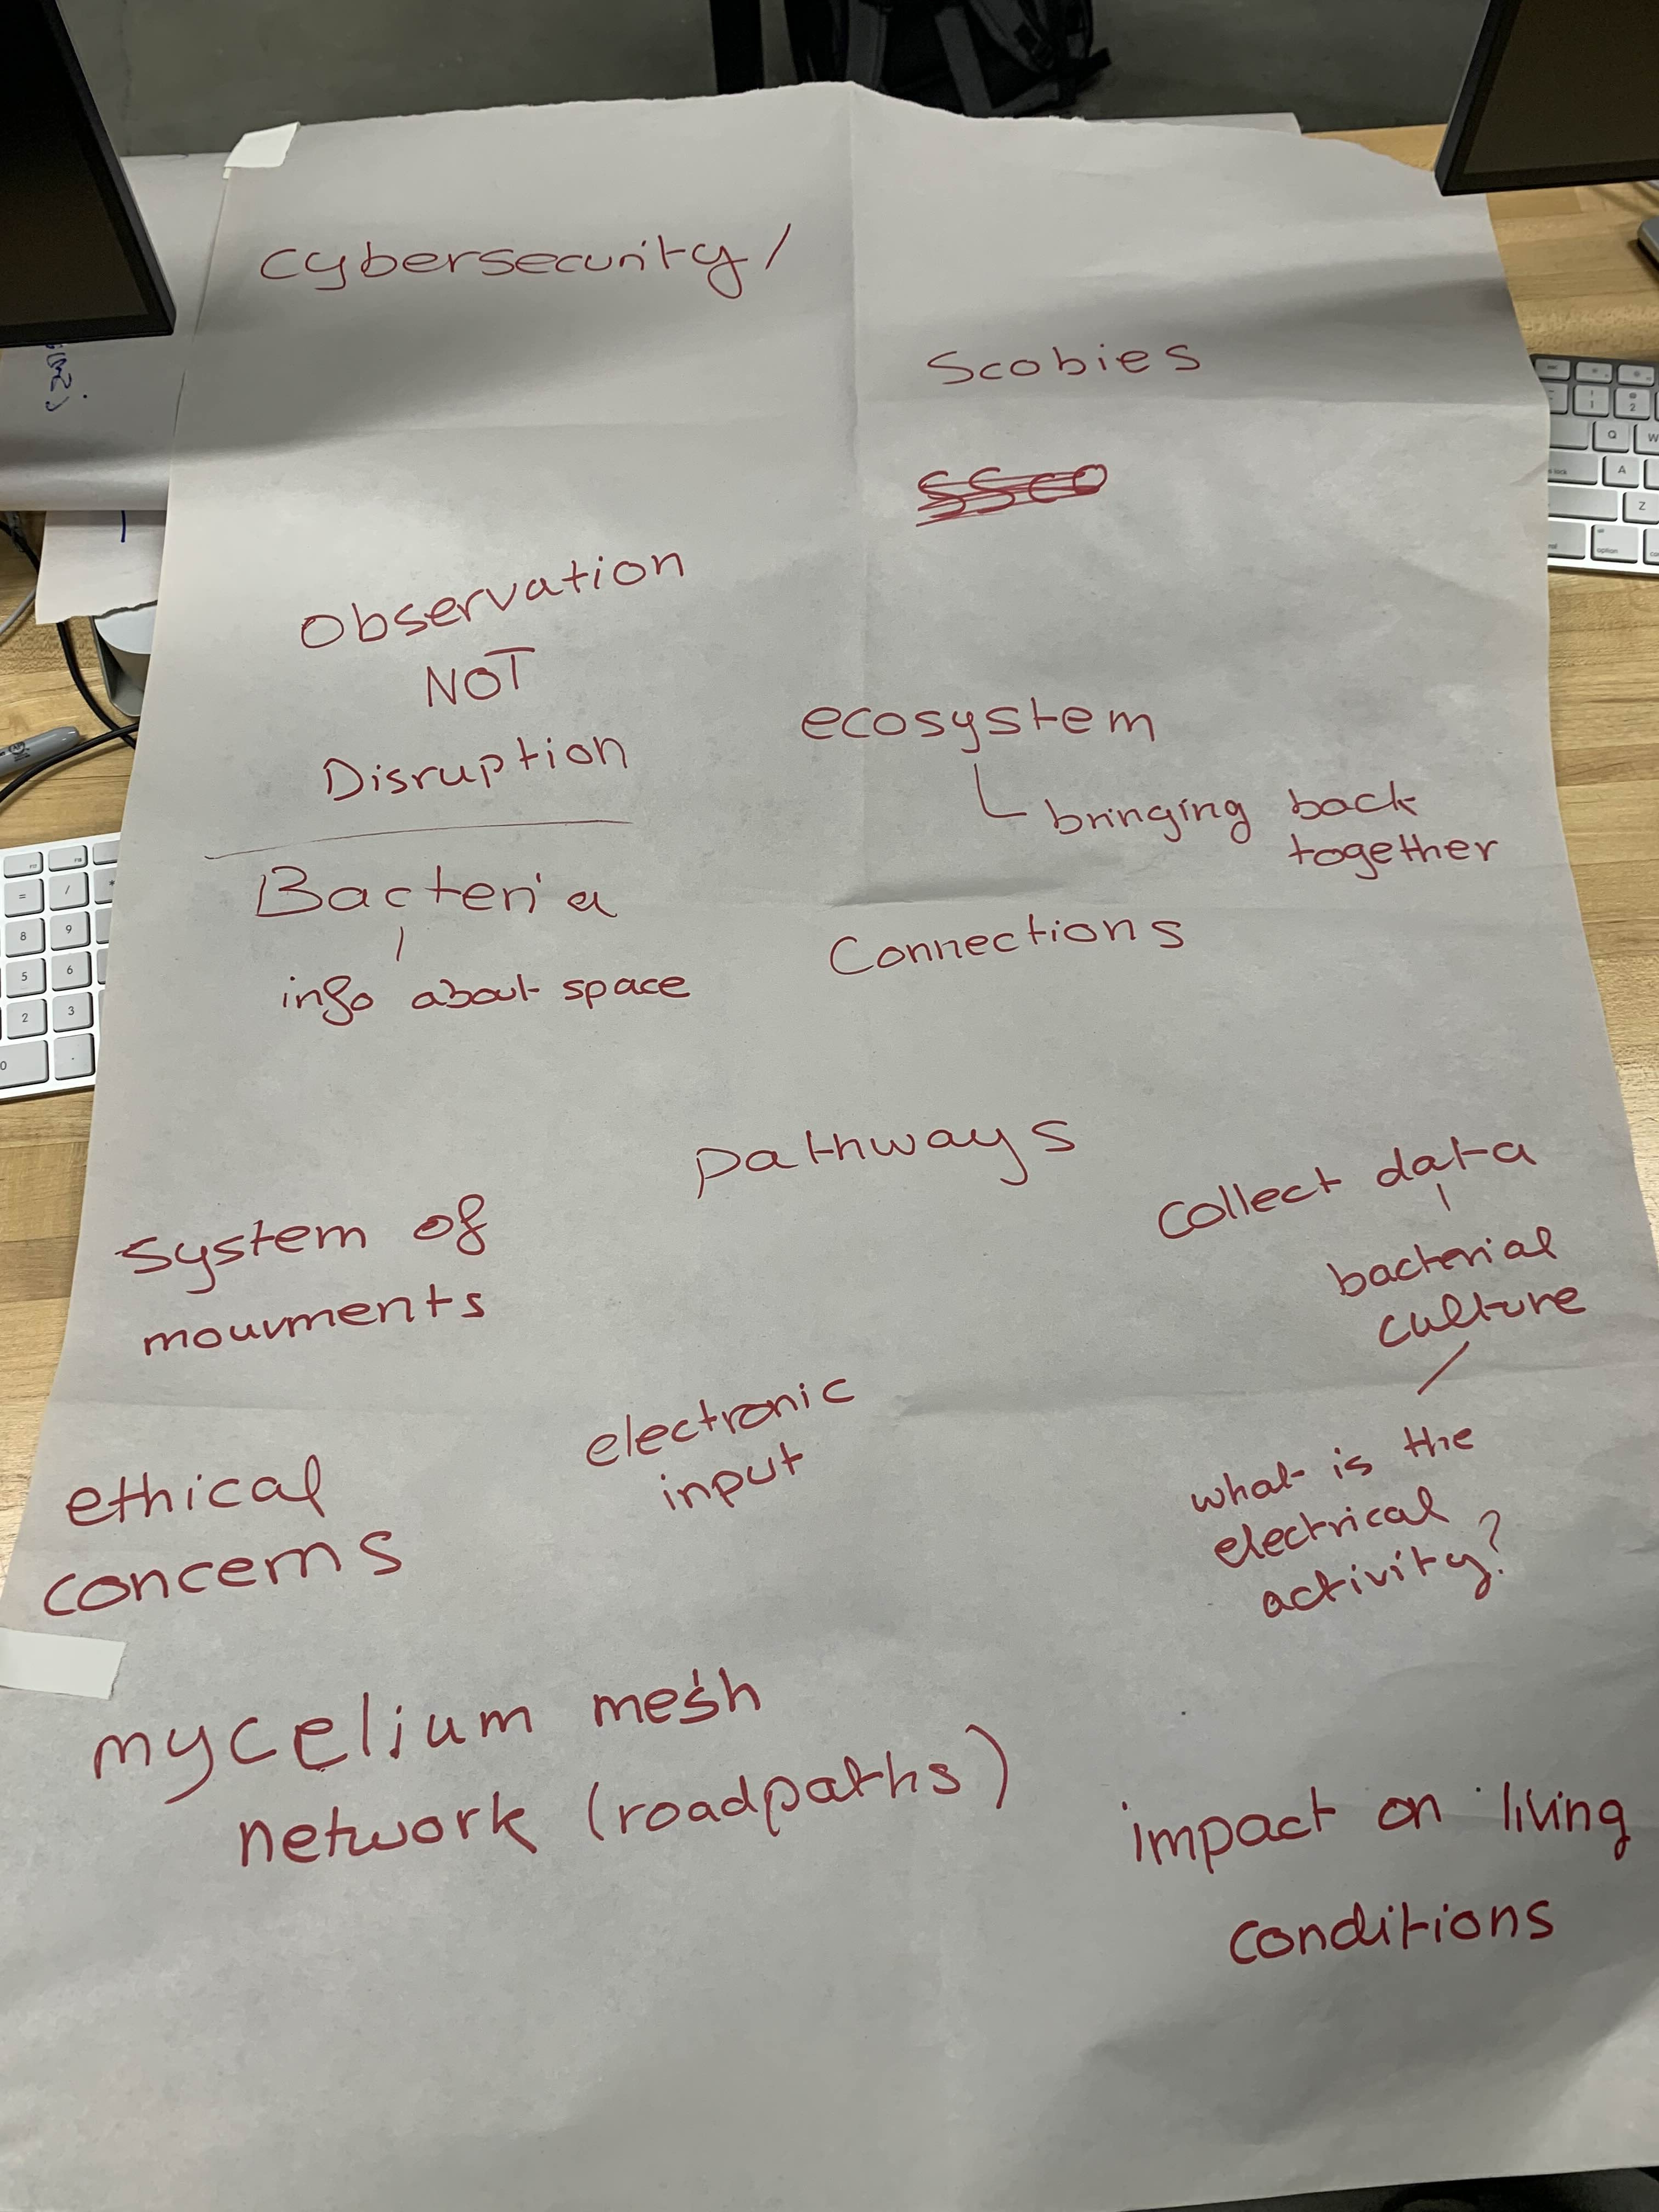 cybersecurity/
Scobies
SSCO
Observation
NOT
Disruption
ecosystem
bringing back
together
Bacteria
info about space
Connections
pathways
Collect data
bacterial
culture
what is the
electrical
activity?
system of
mouvments
electronic
input
ethical
concerns
mycelium mesh
network (roadpaths)
impact on living
conditions